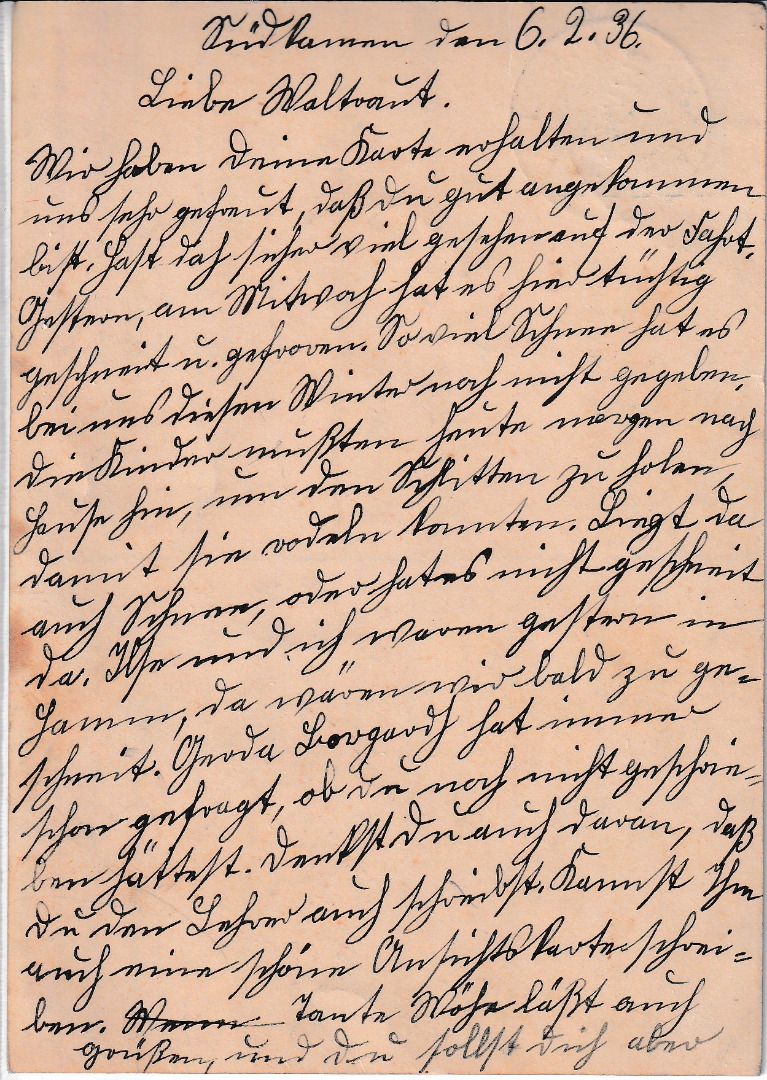 Südkamen den 6. 2. 36.
Liebe Waltraut.
Wir haben deine Karte erhalten und
uns sehr gefreut, daß du gut angekommen
bist. Hast doch sicher viel gesehen auf der Fahrt.
Gestern, am Mitwoch hat es hier tüchtig
geschneit u. gefroren. So viel Schnee hat es
bei uns diesen Winter noch nicht gegeben,
die Kinder mußten heute morgen nach
Hause hin, um den Schlitten zu holen,
damit sie rodeln konnten. Liegt da
auch Schnee, oder hat es nicht geschneit
da. Ilse und ich waren gestern in
Hamm, da wären wir bald zu ge=
schneit. Gerda hat immer
schon gefragt, ob du noch nicht geschrie=
ben hättest. Denkst du auch daran, daß
du den Lehrer auch schreibst. Kannst Ihm
auch eine schöne Ansichtskarte schrei=
ben. Tante läßt auch
grüßen, und du sollst dich aber